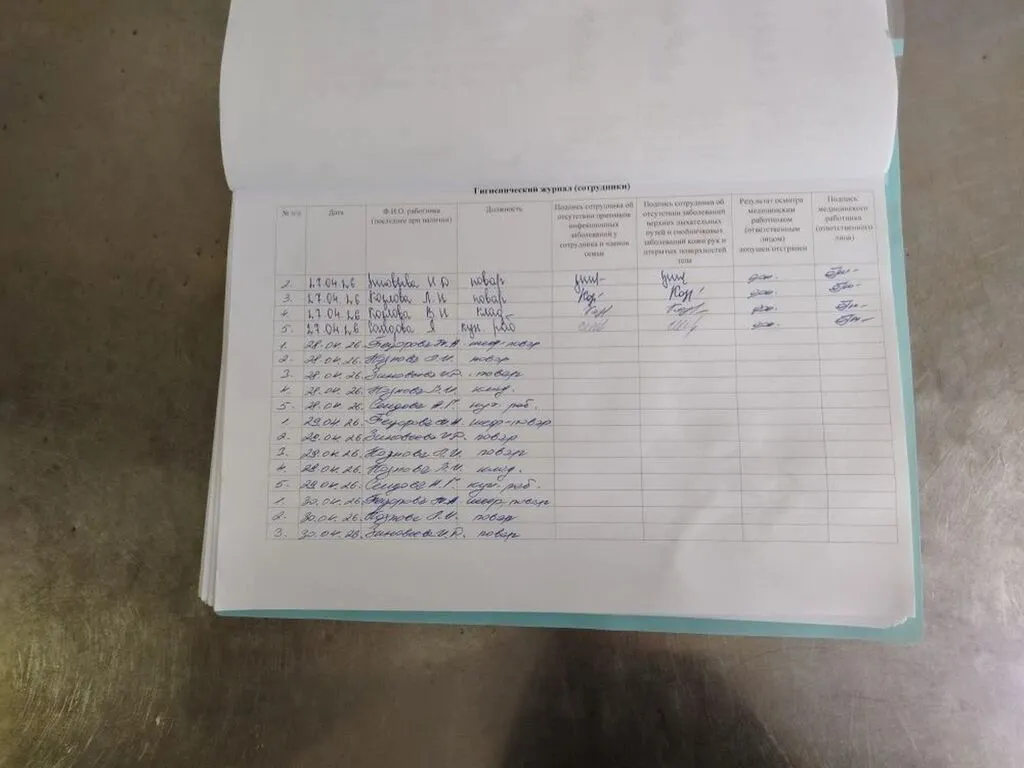 Гигиенический журнал (сотрудники)
№ п/п Дата Ф.И.О. работника (последнее при наличии) Должность Подпись сотрудника об отсутствии признаков инфекционных заболеваний у сотрудника и членов семьи Подпись сотрудника об отсутствии заболеваний верхних дыхательных путей и гнойничковых заболеваний кожи рук и открытых поверхностей тела Результат осмотра медицинским работником (ответственным лицом) допущен/отстранен Подпись медицинского работника (ответственного лица)
2. 27.04 26 И.Р повар доп.
3. 27.04 26 Козлова Л. И повар Коз доп.
4 27.04 26 Козлова В. И клад доп.
5. 27 04 26 кух. раб доп.
1. 28.04.26. Федорова шеф-повар
2. 28.04.26. повар
3. 28.04.26. Зиновьева И.Р. повар
4. 28.04.26. клад.
5. 28.04.26. Саидова А.Г. кух. раб.
1. 29.04.26. Федорова шеф-повар
2. 29.04.26. Зиновьева И.Р. повар
3. 29.04.26. повар
4. 29.04.26. клад.
5. 29.04.26. Саидова А.Г. кух. раб.
1. 30.04.26. Федорова шеф-повар
2. 30.04.26. повар
3. 30.04.26. Зиновьева И.Р. повар